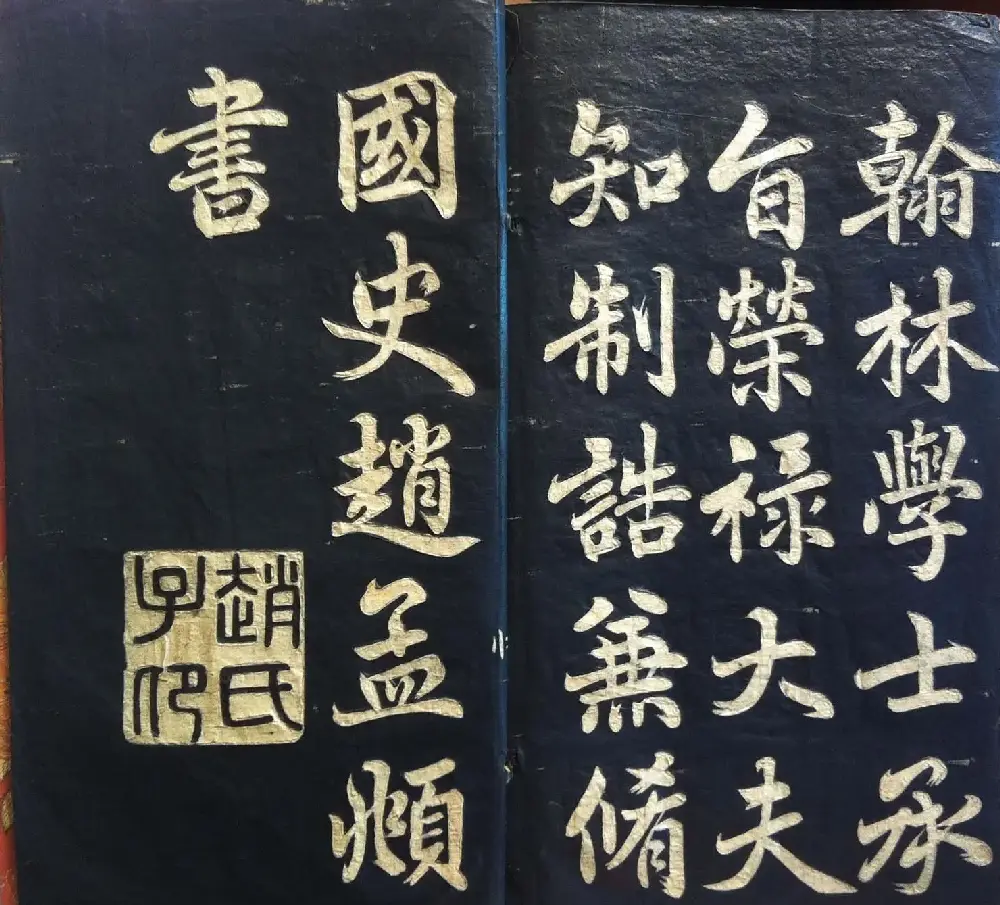 翰林學士承
旨榮禄大夫
知制誥兼脩
國史趙孟頫
書
趙氏
子卬